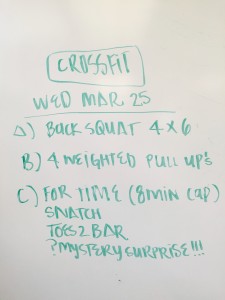 CROSSFIT
WED MAR 25
A) BACK SQUAT 4x6
B) 4 WEIGHTED PULL UPS
C) FOR TIME (8 MIN CAP)
SNATCH
TOES 2 BAR
? MYSTERY SURPRISE!!!